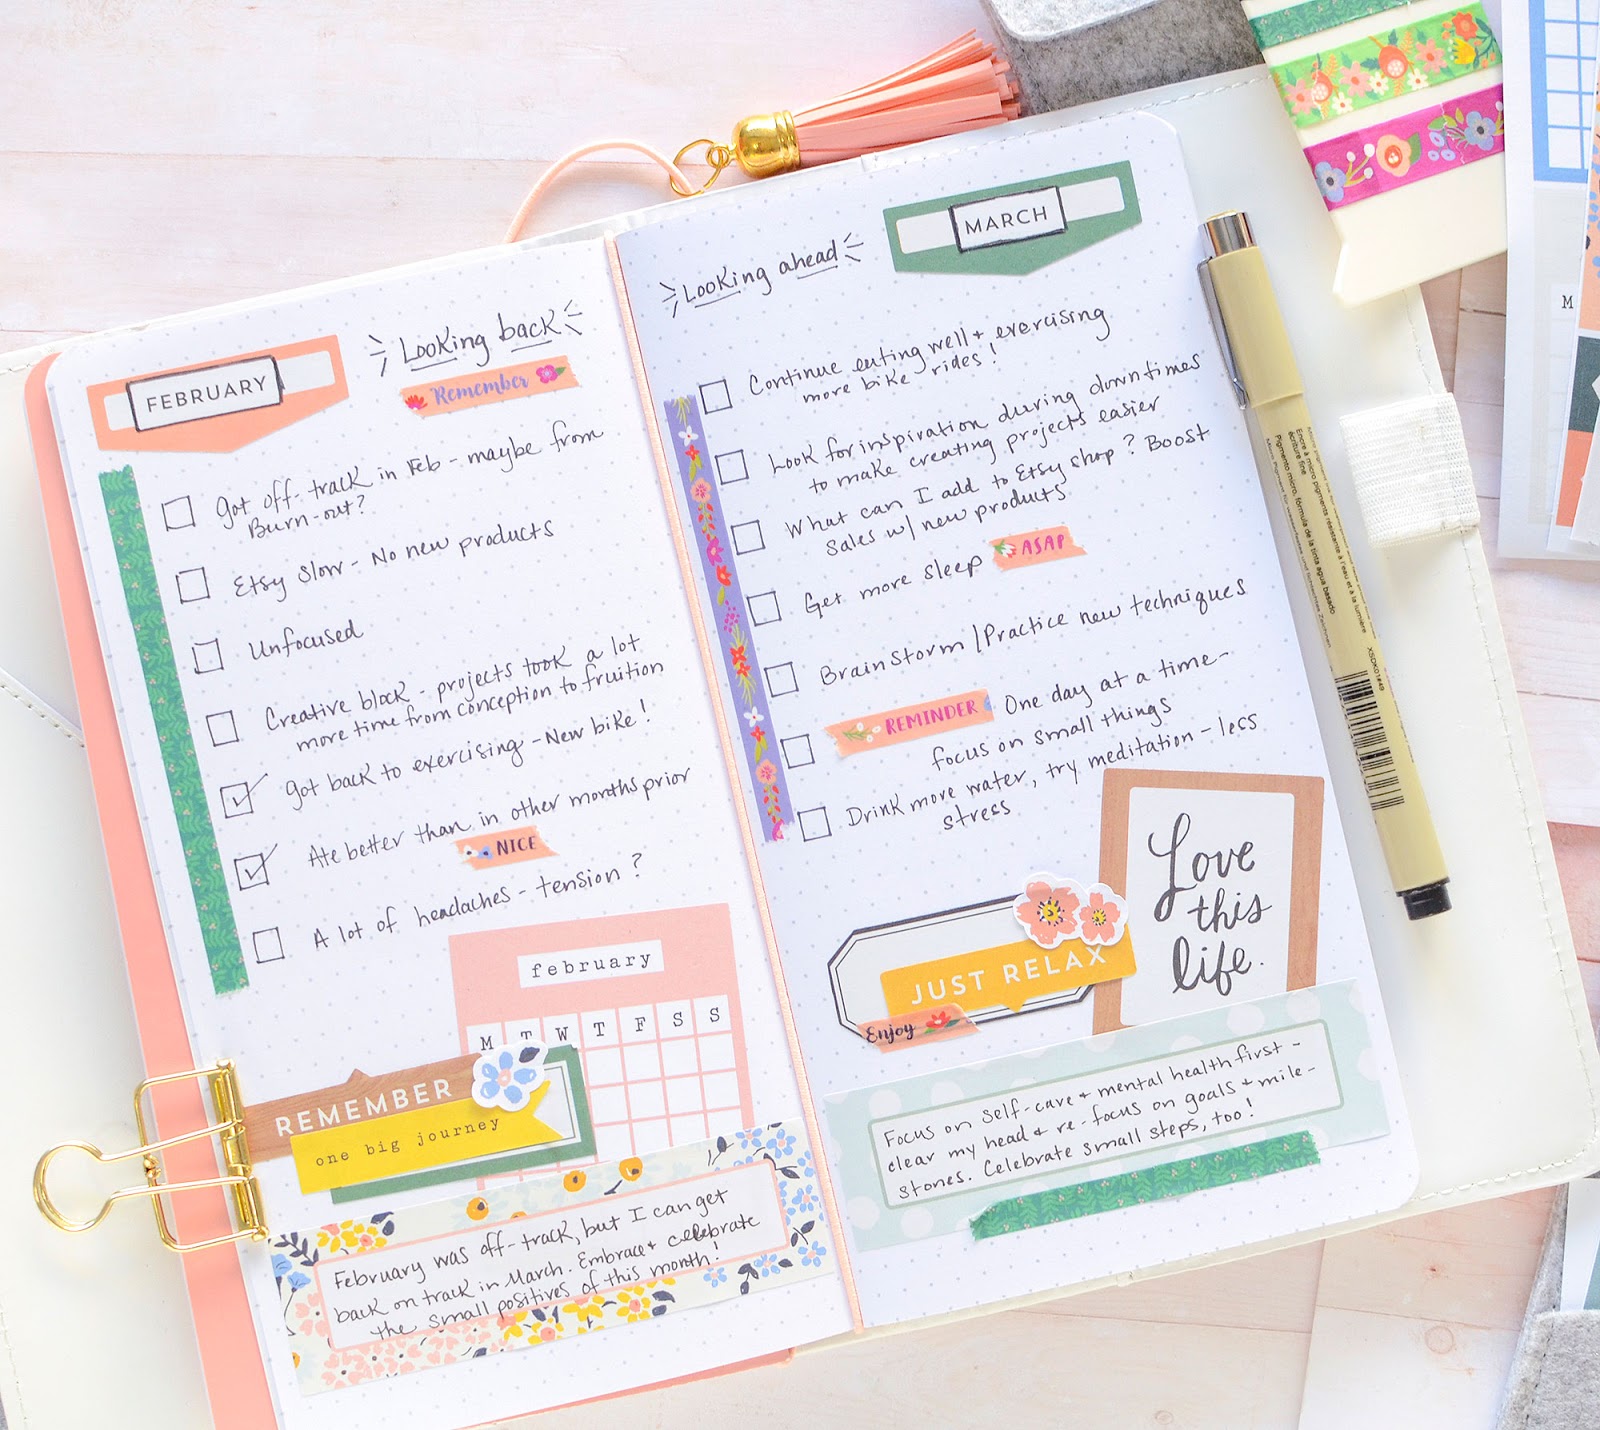 FEBRUARY
Looking back
Remember
Got off-track in Feb - maybe from
Burn-out?
Etsy Slow - No new products
Unfocused
Creative block - projects took a lot
more time from conception to fruition
Got back to exercising - New bike!
Ate better than in other months prior
NICE
A lot of headaches - tension?
february
M T W T F S S
REMEMBER
one big journey
February was off-track, but I can get
back on track in March. Embrace + celebrate
the small positives of this month!
MARCH
Looking ahead
Continue eating well + exercising
more bike rides!
Look for inspiration during downtimes
to make creating projects easier
What can I add to Etsy shop? Boost
Sales w/ new products
Get more sleep ASAP
Brainstorm/Practice new techniques
REMINDER One day at a time-
focus on small things
Drink more water, try meditation - less
stress
Love
this
life.
JUST RELAX
Enjoy
Focus on self-care + mental health first -
clear my head & re-focus on goals + mile-
stones. Celebrate small steps, too!
XSDK01#49
M